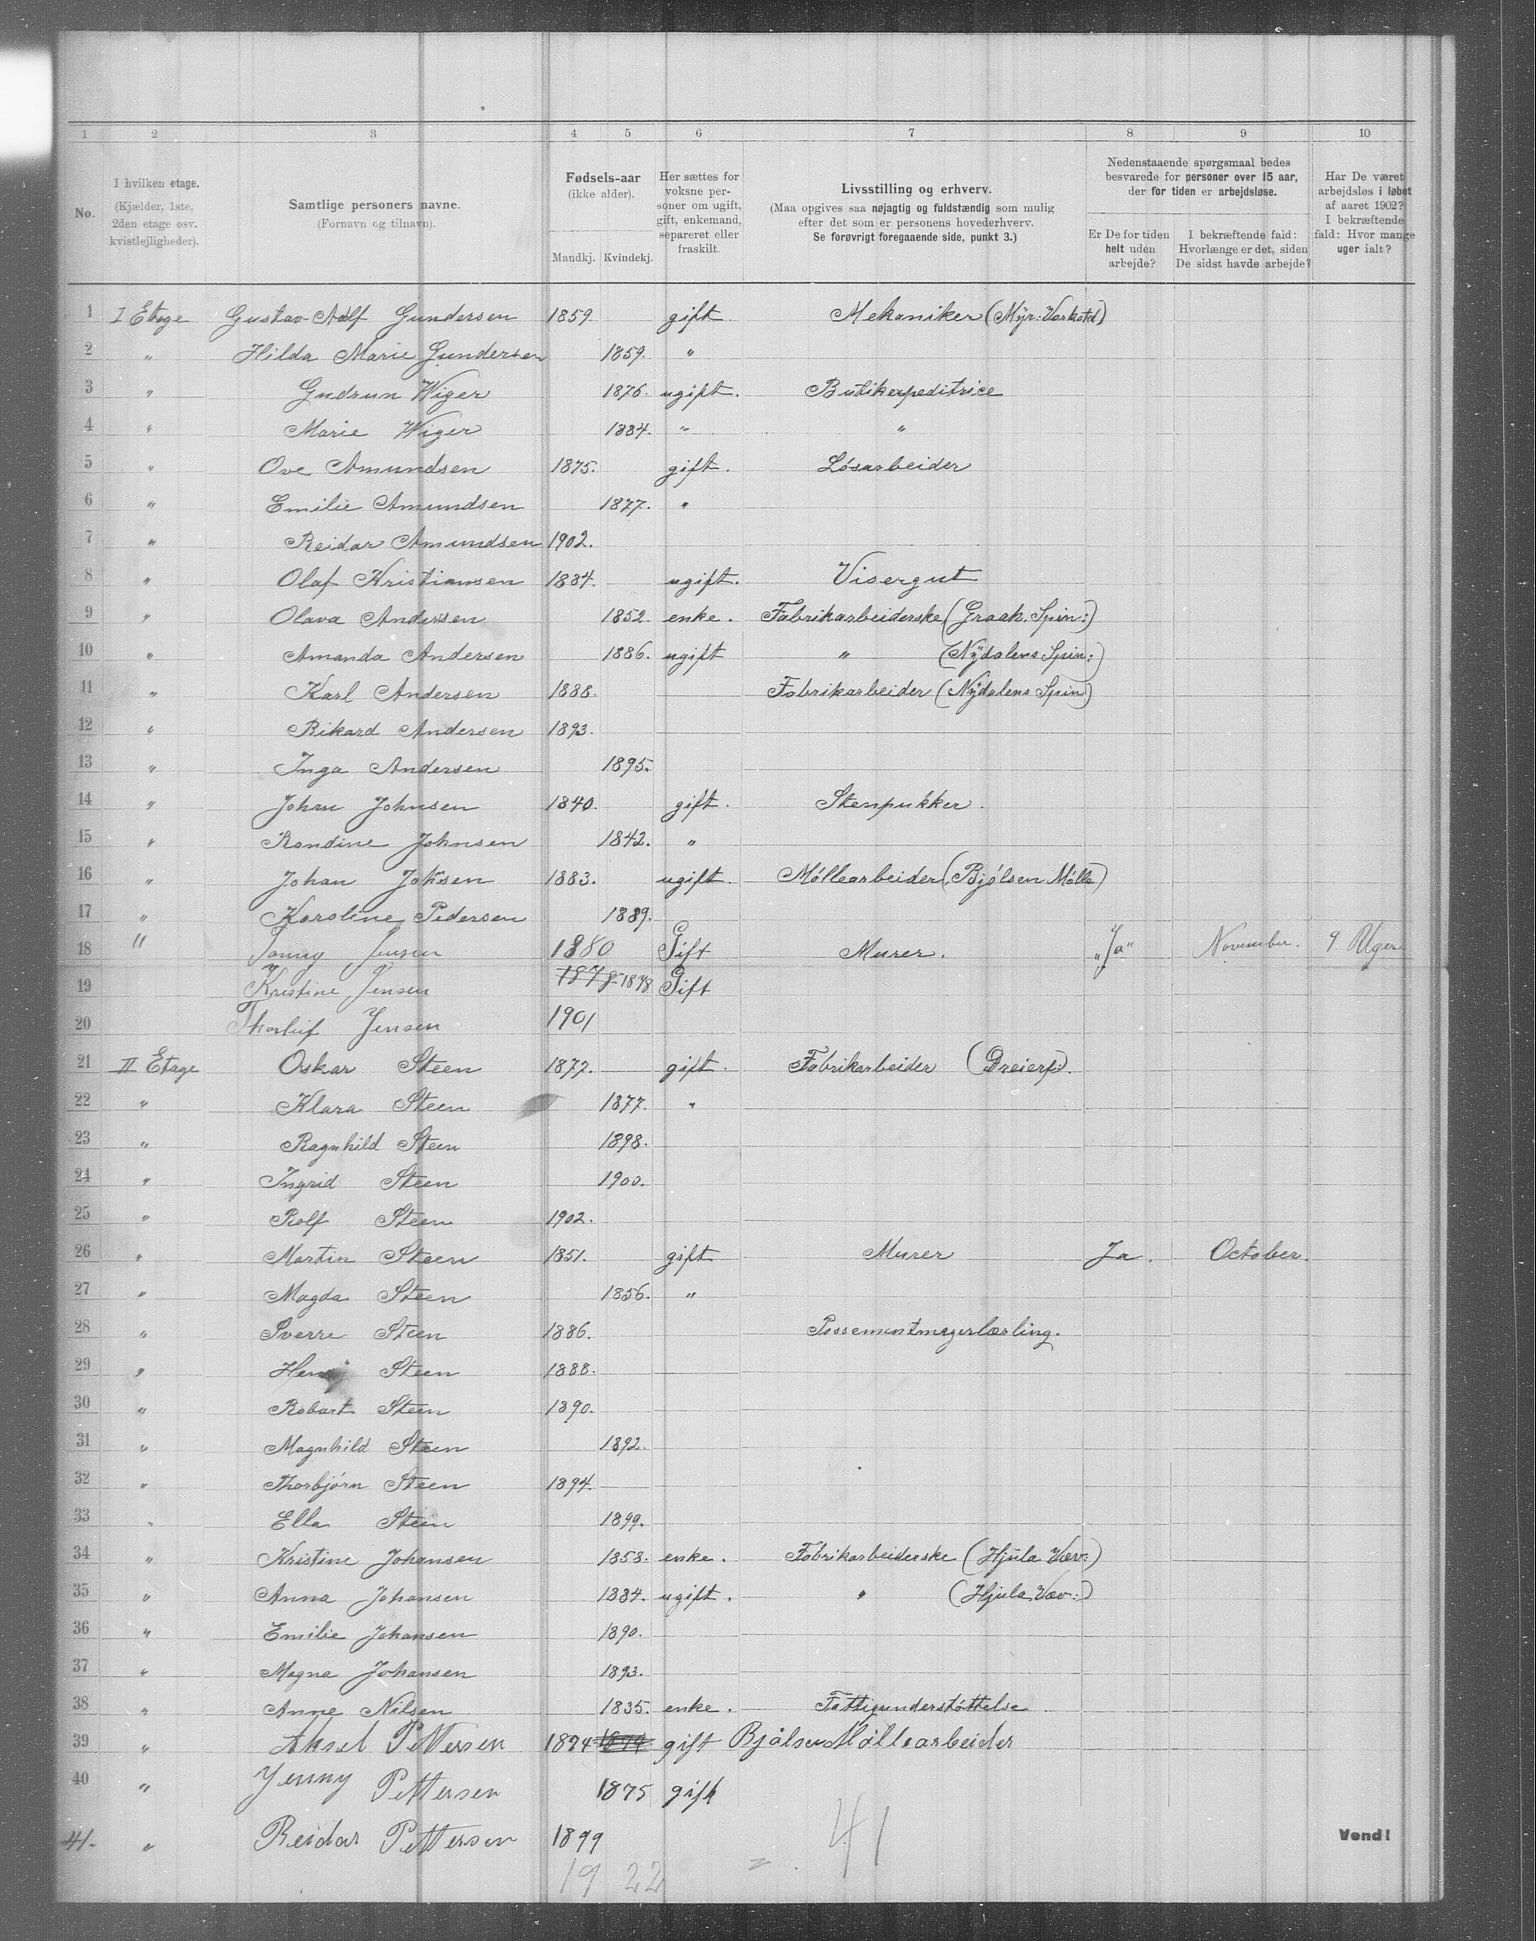 1 2 3 4 5 6 7 8 9 10
No.
I hvilken etage. (Kjælder, 1ste, 2den etage osv. kvistlejligheder).
Samtlige personers navne. (Fornavn og tilnavn).
Fødsels-aar (ikke alder). Mandkj. Kvindekj.
Her sættes for voksne personer om ugift, gift, enkemand, separeret eller fraskilt.
Livsstilling og erhverv. (Maa opgives saa nøjagtig og fuldstændig som mulig efter det som er personens hovederhverv. Se forøvrigt foregaaende side, punkt 3.)
Nedenstaaende spørgsmaal bedes besvarede for personer over 15 aar, der for tiden er arbejdsløse.
Er De for tiden helt uden arbejde?
I bekræftende fald: Hvorlænge er det, siden De sidst havde arbejde?
Har De været arbejdsløs i løbet af aaret 1902? I bekræftende fald: Hvor mange uger ialt?
1 I Etage Gustav Adolf Gundersen 1859. gift. Mekaniker (Myr: Verksted)
2 " Hilda Marie Gundersen 1859. "
3 " Gudrun Wiger 1876. ugift. Butikexpeditrice
4 " Marie Wiger 1884. " "
5 " Ove Amundsen 1875. gift. Løsarbeider
6 " Emilie Amundsen 1877. "
7 " Reidar Amundsen 1902.
8 " Olaf Kristiansen 1884. ugift. Visergut
9 " Olava Andersen 1852. enke. Fabrikarbeiderske (Graah. Spin:)
10 " Amanda Andersen 1886. ugift " (Nydalens Spin:)
11 " Karl Andersen 1888. Fabrikarbeider (Nydalens Spin)
12 " Rikard Andersen 1893.
13 " Inga Andersen 1895.
14 " Johan Johnsen 1840. gift. Stenpukker.
15 " Randine Johnsen 1842. "
16 " Johan Johsen 1883. ugift. Møllearbeider (Bjølsen Mølle)
17 " Karoline Pedersen 1889.
18 " Jonny Jensen 1880 Gift Murer. "Ja" November. 9 Uger
19 Kristine Jensen 1878 1878 Gift
20 Thorleif Jensen 1901
21 II Etage Oskar Steen 1877. gift. Fabrikarbeider (Dreierf:).
22 " Klara Steen 1877. "
23 " Ragnhild Steen 1898.
24 " Ingrid Steen 1900.
25 " Rolf Steen 1902.
26 " Martin Steen 1851. gift Murer Ja. October.
27 " Magda Steen 1856. "
28 " Sverre Steen 1886. Possementmagerlærling.
29 " Steen 1888.
30 " Robart Steen 1890.
31 " Magnhild Steen 1892.
32 " Thorbjørn Steen 1894.
33 " Ella Steen 1899.
34 " Kristine Johansen 1858. enke. Fabrikarbeiderske (Hjula Væv:)
35 " Anna Johansen 1884. ugift. " (Hjula Væv:)
36 " Emilie Johansen 1890.
37 " Magna Johansen 1893.
38 " Anne Nilsen 1835. enke. Fattigunderstøttelse
39 " Aksel Pettersen 1874 1874 gift Bjølsen Møllearbeider
40 " Jenny Pettersen 1875 gift
41. " Reidar Pettersen 1899
Vend!
19 22 = 41